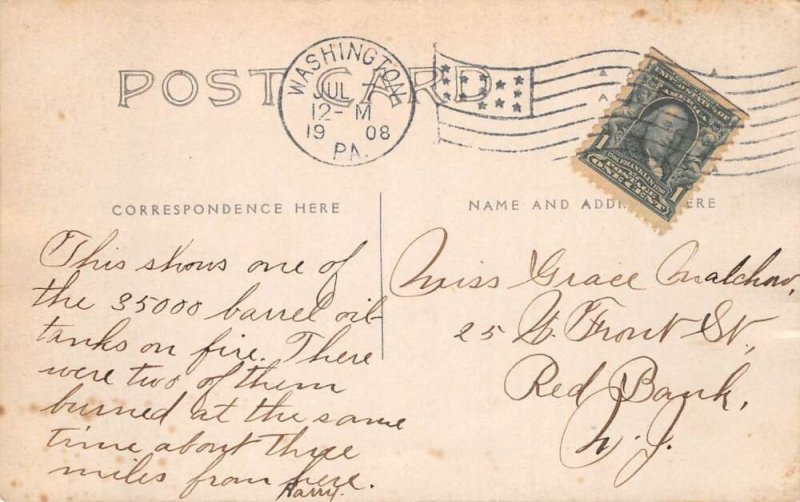 POST CARD
WASHINGTON,
JUL 7
12-M
1908
PA.
UNITED STATES OF
AMERICA
1 FRANKLIN 1
POSTAGE
ONE CENT
CORRESPONDENCE HERE
This shows one of
the 35000 barrel oil
tanks on fire. There
were two of them
burned at the same
time about three
miles from here.
Harry.
NAME AND ADDRESS HERE
Miss Grace Malchow,
25 W. Front St,
Red Bank,
N. J.